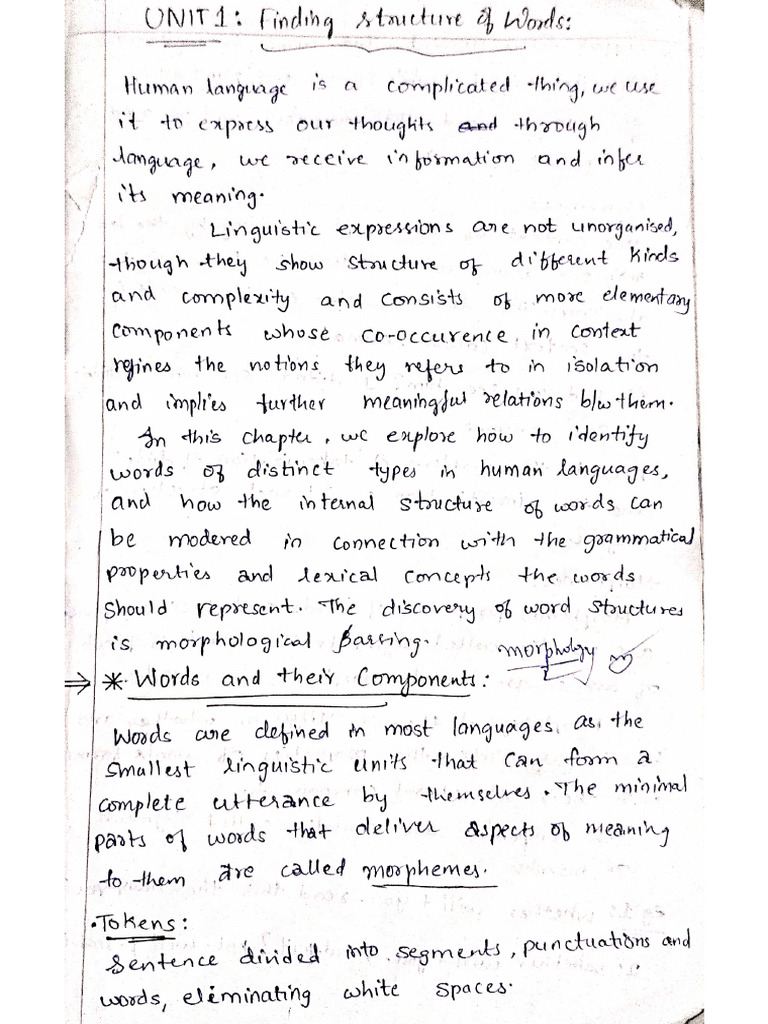 UNIT 1: Finding structure of Words:
Human language is a complicated thing, we use
it to express our thoughts and through
language, we receive information and infer
its meaning.
Linguistic expressions are not unorganised,
though they show structure of different kinds
and complexity and consists of more elementary
components whose co-occurence in context
refines the notions they refers to in isolation
and implies further meaningful relations b/w them.
In this chapter, we explore how to identify
words of distinct types in human languages,
and how the internal structure of words can
be modered in connection with the grammatical
properties and lexical concepts the words
should represent. The discovery of word structures
is morphological parsing.
morphology
⇒ * Words and their Components:
Words are defined in most languages as the
smallest linguistic units that can form a
complete utterance by themselves. The minimal
parts of words that deliver aspects of meaning
to them are called morphemes.
• Tokens:
Sentence divided into segments, punctuations and
words, eliminating white spaces.